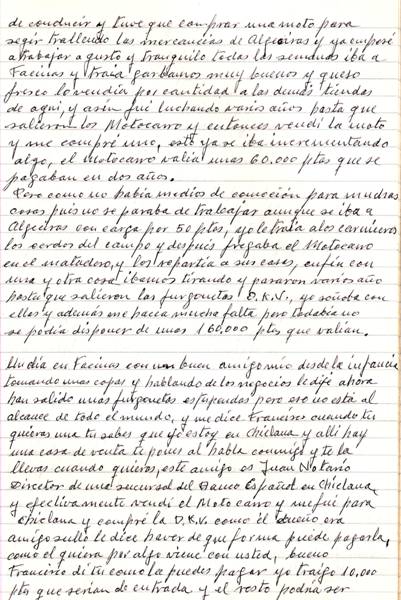 de conducir y tuve que comprar una moto para
segir trallendo las mercancias de Algeciras y ya empesé
a trabajar agusto y tranquilo todas las semanas iba a
Facinas y traia garbanzos muy buenos y queso
fresco lo vendia por cantidad a las demas tiendas
de aqui, y asin fui luchando varios años hasta que
salieron los Motocarro y entonces vendi la moto
y me compré uno, esto ya se iba incrementando
algo, el motocarro valia unas 60.000 ptas que se
pagaban en dos años.
Pero como no habia medios de comoción para muchas
cosas pues no se paraba de trabajar aunque se iba a
Algeciras con carga por 50 ptas, yo le traia a los carniceros
los cerdos del campo y después fregaba el Motocarro
en el matadero, y los repartia a sus casas, en fin con
una y otra cosa ibamos tirando y pasaron varios año
hasta que salieron las furgonetas D.K.V., yo soñaba con
ellas y además me hacia mucha falta pero todabia no
se podia disponer de unas 160.000 ptas que valian.
Un dia en Facinas con un buen amigo mio desde la infancia
tomando unas copas y hablando de los negocios le dije ahora
han salido unas furgonetas estupendas pero eso no está al
alcance de todo el mundo, y me dice Francisco cuando tu
quieras una tu sabes que yo estoy en Chiclana y alli hay
una casa de venta te pones al habla conmigo y te la
llevas cuando quieras, este amigo es Juan Notario
Director de una sucursal del Banco Español en Chiclana,
y efectivamente vendi el Motocarro y me fui para
Chiclana y compré la D.K.V. como el dueño era
amigo sullo le dice haver de que forma puede pagarla,
como el quiera por algo viene con usted, bueno
Francisco di tu como la puedes pagar yo traigo 10.000
ptas que serian de entrada y el resto podria ser